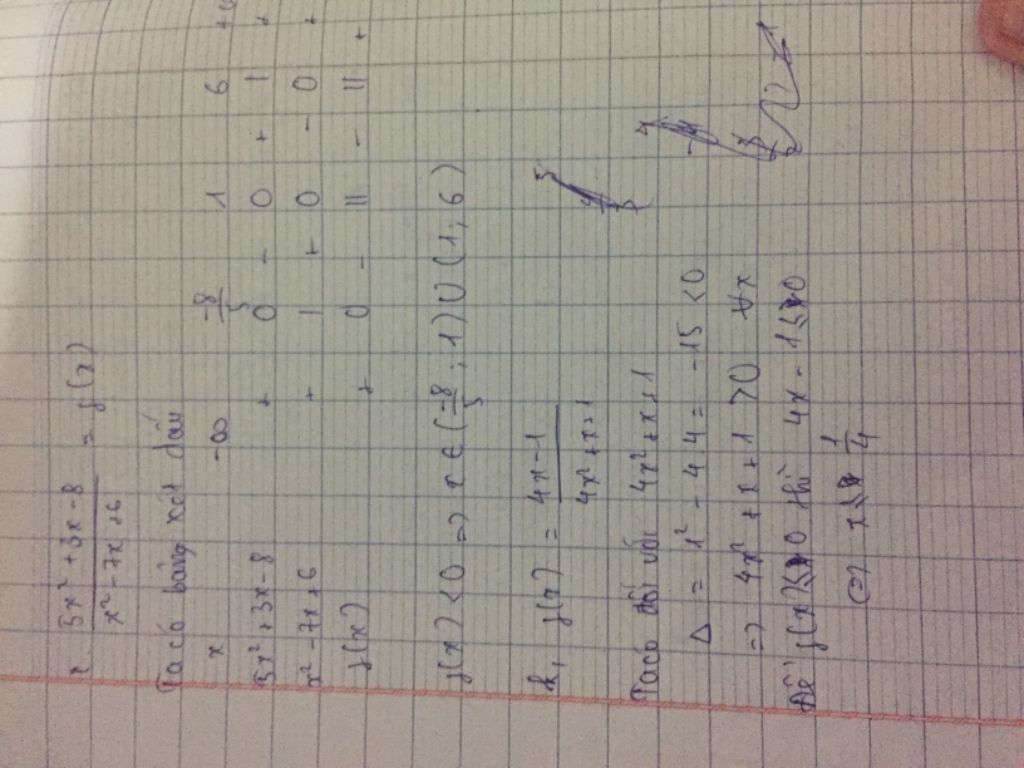 r. 5x² + 3x - 8 / x² - 7x + 6 = f(x)
Ta có bảng xét dấu
x -∞ -8/5 1 6 +∞
5x² + 3x - 8 + 0 - 0 + | +
x² - 7x + 6 + | + 0 - 0 +
f(x) + 0 - || - || +
f(x) < 0 => x ∈ (-8/5 ; 1) ∪ (1 ; 6)
k, f(x) = 4x - 1 / 4x² + x + 1
Ta có đối với 4x² + x + 1
Δ = 1² - 4.4 = -15 < 0
=> 4x² + x + 1 > 0 ∀x
Để f(x) ≤ 0 thì 4x - 1 ≤ 0
<=> x ≤ 1/4